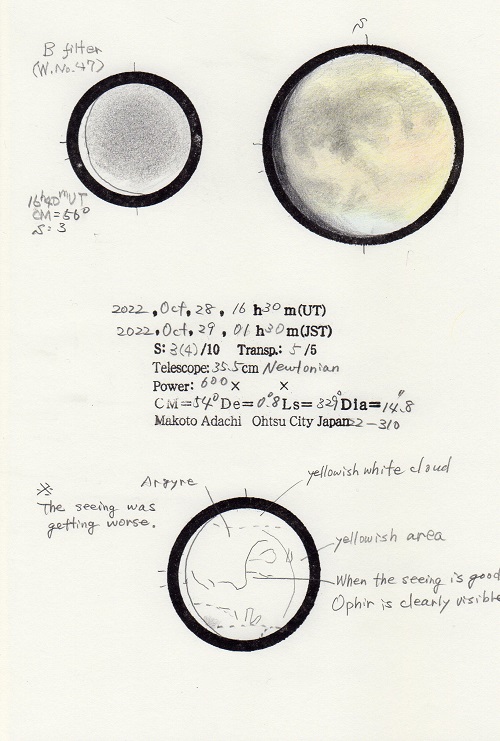 S
B filter
(W.No.47)
16h40mUT
CM=56°
S:3
2022, Oct, 28, 16 h30 m(UT)
2022, Oct, 29, 01 h30 m(JST)
S: 3(4)/10 Transp.: 5/5
Telescope: 35.5cm Newtonian
Power: 600× ×
CM=54° De=0.°8 Ls=329° Dia=14."8
Makoto Adachi Ohtsu City Japan 22-310
※
The seeing was
getting worse.
Argyre
yellowish white cloud
yellowish area
When the seeing is good
Ophir is clearly visible